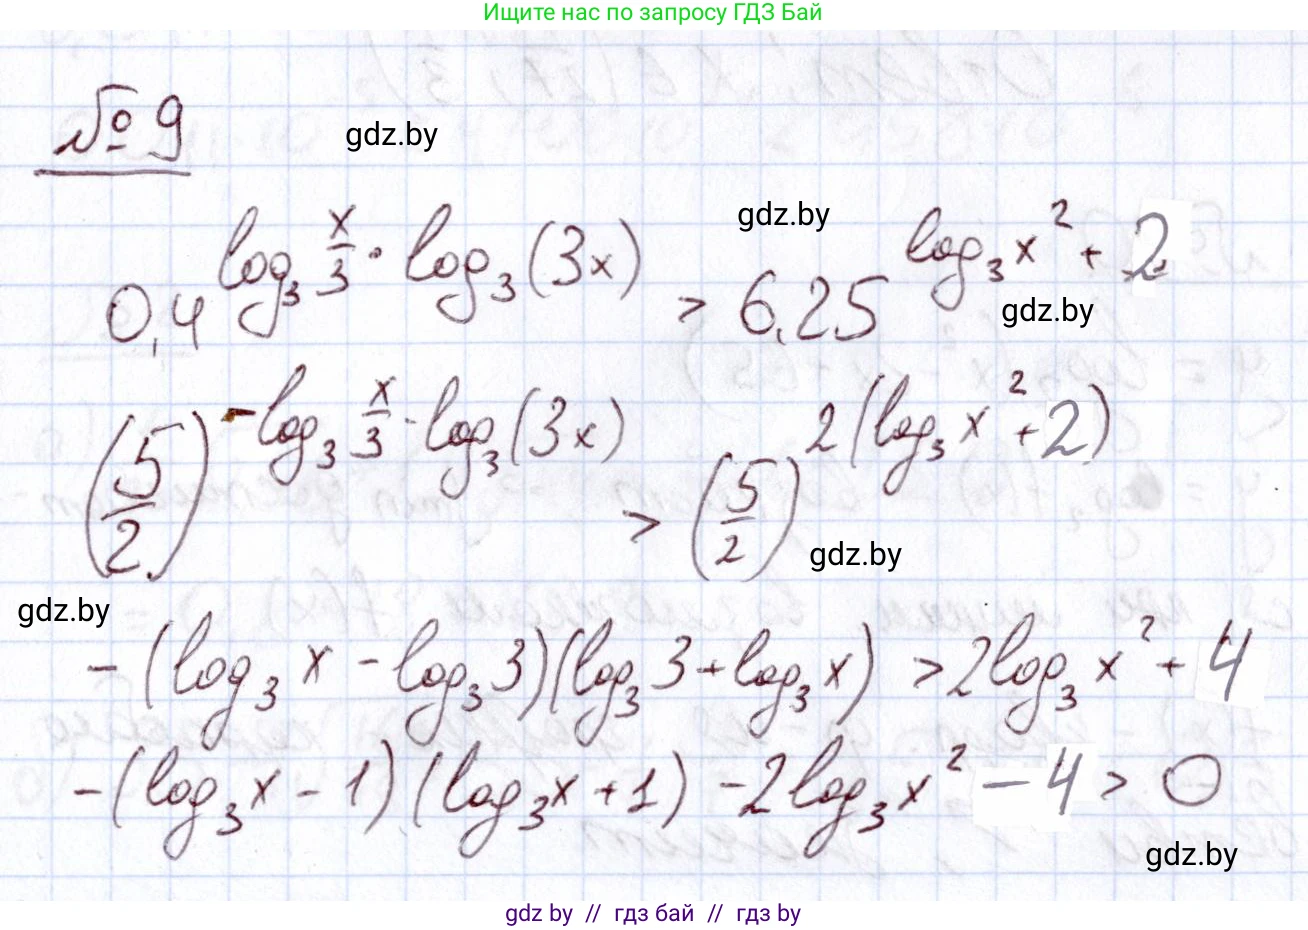 Ищите нас по запросу ГДЗ Бай
№ 9
gdz.by
gdz.by
0,4^{log₃ x/3 · log₃(3x)} > 6,25^{log₃ x² + 2}
gdz.by
(5/2)^{-log₃ x/3 · log₃(3x)} > (5/2)^{2(log₃ x² + 2)}
gdz.by
gdz.by
-(log₃ x - log₃ 3)(log₃ 3 + log₃ x) > 2log₃ x² + 4
-(log₃ x - 1)(log₃ x + 1) - 2log₃ x² - 4 > 0
gdz.by
gdz by // гдз бай // гдз by